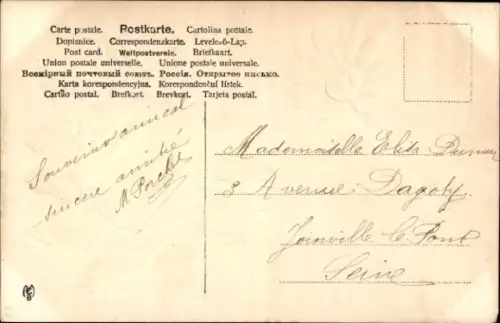 Carte postale. Postkarte. Cartolina postale.
Dopisnice. Correspondenzkarte. Levelező-Lap.
Post card. Weltpostverein. Briefkaart.
Union postale universelle. Unione postale universale.
Всемірный почтовый союзъ. Россія. Открытое письмо.
Karta korespondencyjna. Korespondenční lístek.
Cartão postal. Brefkort. Brevkort. Tarjeta postal.
Souvenir amical
sincère amitié
M Porcher
Mademoiselle Elisa
9 Avenue Dagoty
Joinville le Pont
Seine